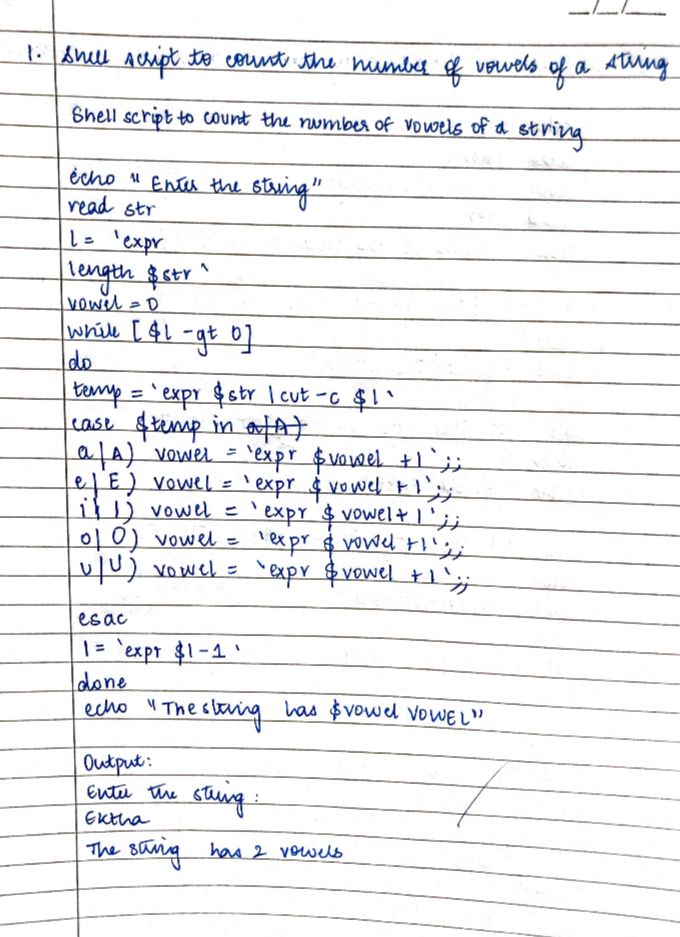 1. Shell script to count the number of vowels of a string
Shell script to count the number of vowels of a string
echo " Enter the string"
read str
l = `expr
length $str `
vowel = 0
while [ $l -gt 0]
do
temp = `expr $str | cut -c $l`
case $temp in a|A)
a|A) vowel = `expr $vowel +1`;;
e|E) vowel = `expr $vowel +1`;;
i|I) vowel = `expr $vowel+1`;;
o|O) vowel = `expr $vowel +1`;;
u|U) vowel = `expr $vowel +1`;;
esac
l = `expr $l-1`
done
echo "The string has $vowel VOWEL"
Output:
Enter the string :
Ektha
The string has 2 vowels